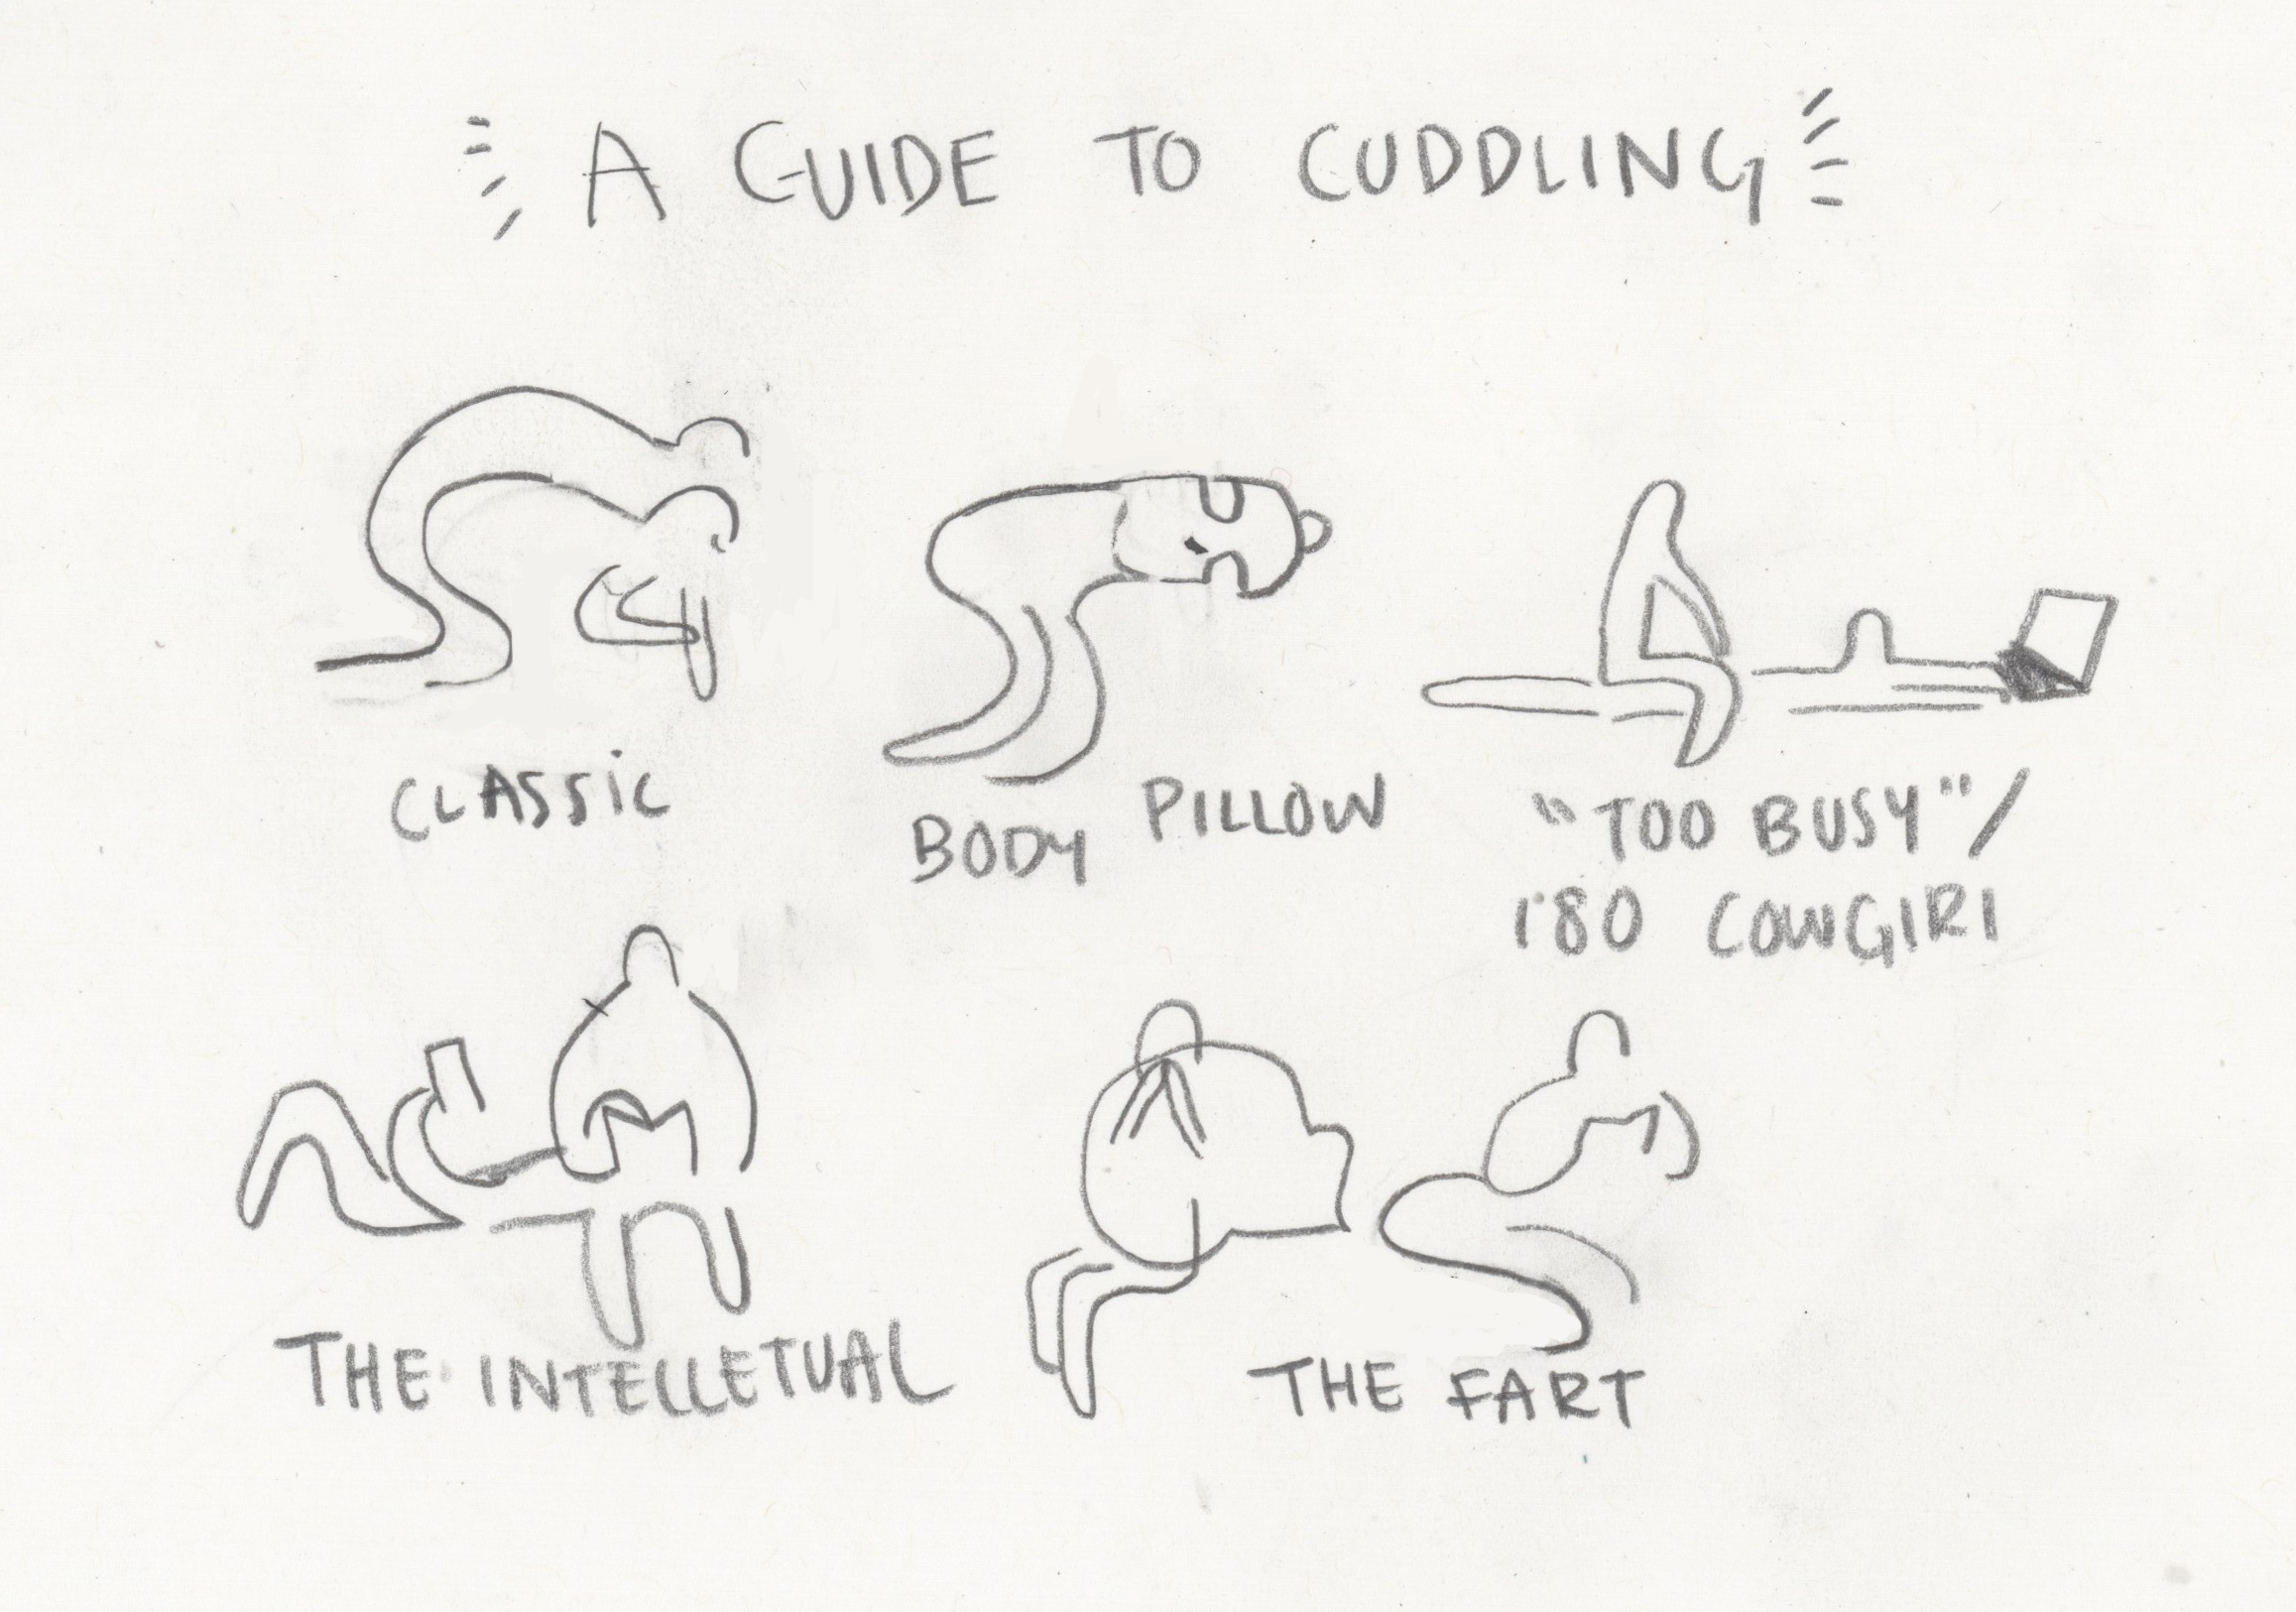 A GUIDE TO CUDDLING
CLASSIC
BODY PILLOW
"TOO BUSY"/
180 COWGIRl
THE INTELLETUAL
THE FART